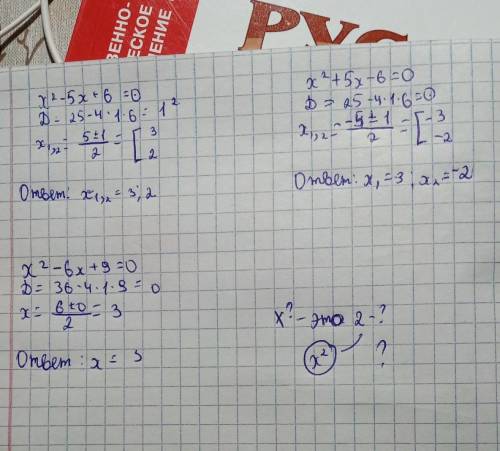 ВЕННО-
ЧЕСКОЕ
ЛЕНИЕ
РУС
x² - 5x + 6 = 0
D = 25 - 4·1·6 = 1²
x₁,₂ = (5 ± 1)/2 = [3
2
Ответ: x₁,₂ = 3; 2
x² + 5x - 6 = 0
D = 25 - 4·1·6 = 0
x₁,₂ = (-5 ± 1)/2 = [-3
-2
Ответ: x₁ = 3; x₂ = -2
x² - 6x + 9 = 0
D = 36 - 4·1·9 = 0
x = (6 ± 0)/2 = 3
Ответ: x = 3
x? - это 2 - ?
x² ?